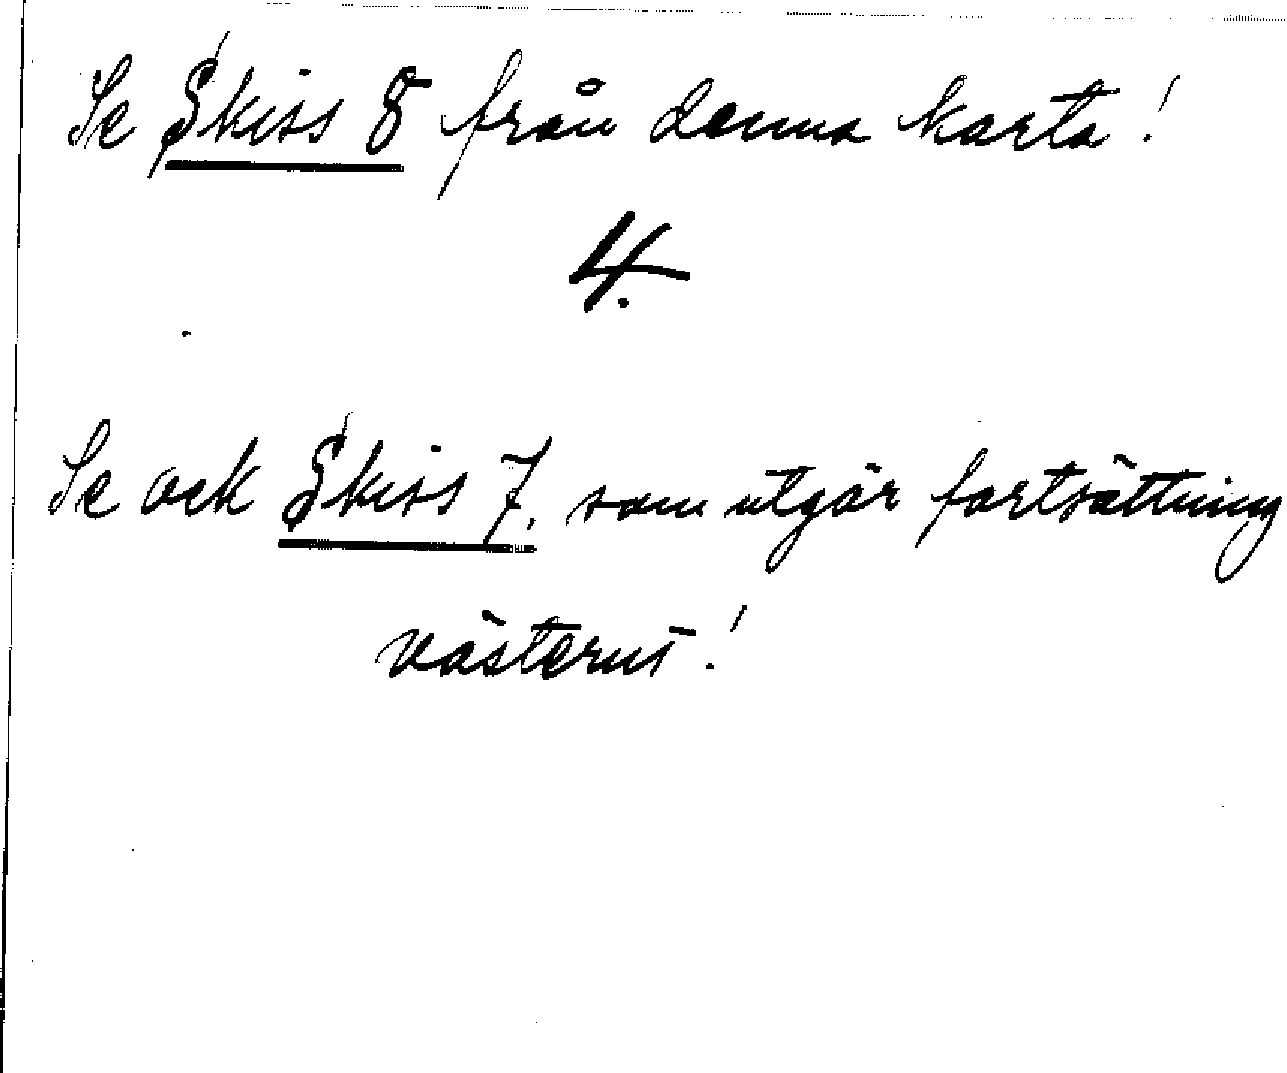 Se Skiss 8 från denna karta!
4.
Se ock Skiss 7, som utgör fortsättning
västerut!